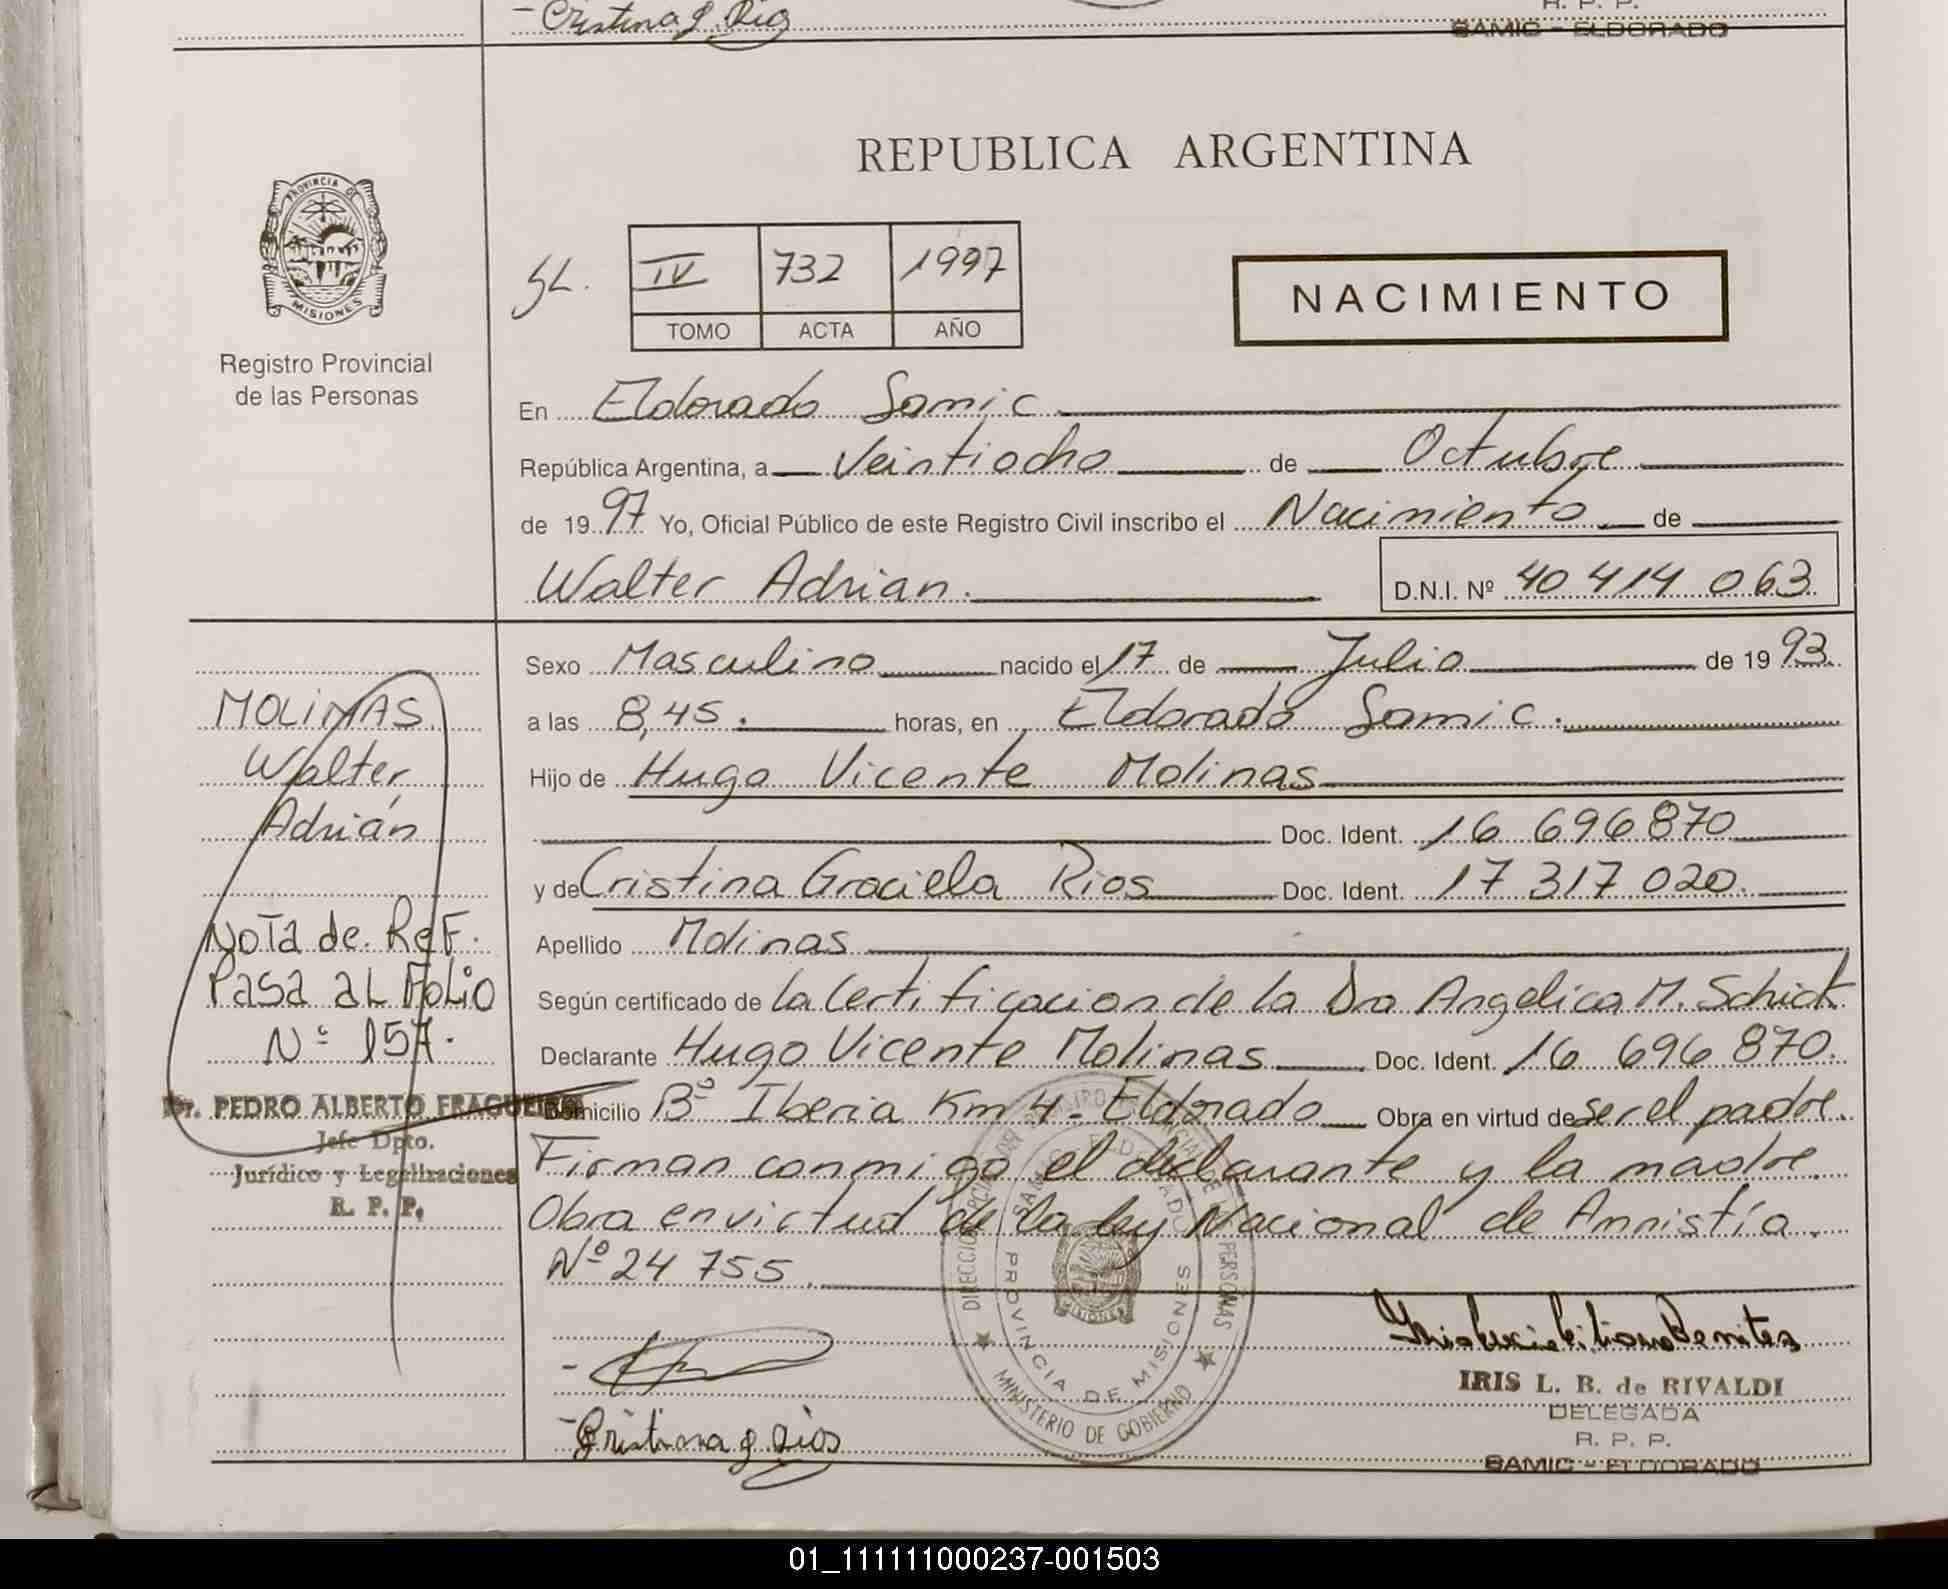 - Cristina g. Rios
R. P. P.
SAMIC - ELDORADO
REPUBLICA ARGENTINA
PROVINCIA DE
MISIONES
Registro Provincial
de las Personas
IV 732 1997
TOMO ACTA AÑO
NACIMIENTO
En Eldorado Samic
República Argentina, a Veintiocho de Octubre
de 1997 Yo, Oficial Público de este Registro Civil inscribo el Nacimiento de
Walter Adrian. D.N.I. Nº 40 414 063
Sexo Masculino nacido el 17 de Julio de 1993.
a las 8,45. horas, en Eldorado Samic.
Hijo de Hugo Vicente Molinas
Doc. Ident. 16 696 870
y de Cristina Graciela Rios Doc. Ident. 17 317 020.
Apellido Molinas
Según certificado de la Certificacion de la Dra Angelica M. Schick
Declarante Hugo Vicente Molinas Doc. Ident. 16 696 870.
Domicilio Bº Iberia Km 4 - Eldorado Obra en virtud de ser el padre.
Firman conmigo el declarante y la madre.
Obra en virtud de la ley Nacional de Amnistía.
Nº 24 755.
MOLINAS
Walter
Adrián
Nota de Ref.
Pasa al Folio
Nº 157.
Dr. PEDRO ALBERTO FRAGUEIRO
Jefe Dpto.
Jurídico y Legalizaciones
R. P. P.
PROVINCIA DE MISIONES
MINISTERIO DE GOBIERNO
- Cristina g. Rios
IRIS L. B. de RIVALDI
DELEGADA
R. P. P.
SAMIC - ELDORADO
01_111111000237-001503